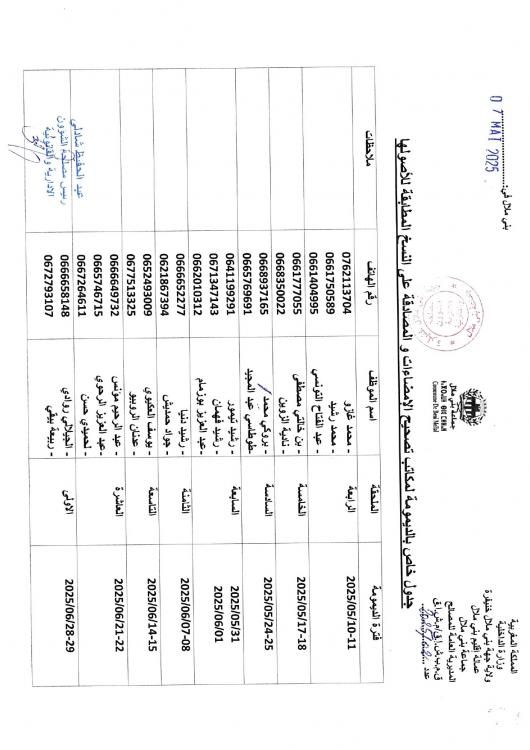 المملكة المغربية
وزارة الداخلية
ولاية جهة بني ملال خنيفرة
عمالة إقليم بني ملال
جماعة بني ملال
المديرية العامة للمصالح
عدد
جماعة بني ملال
Commune De Beni Mellal
بني ملال في:
0 7 MAI 2025
جدول خاص بالديمومة لمكاتب تصحيح الامضاءات و المصادقة على النسخ المطابقة للأصولها
فترة الديمومة الملحقة اسم الموظف رقم الهاتف ملاحظات
2025/05/10-11 الرابعة - محمد غازو 0762113704
- محمد رشيد 0661750589
- عبد الفتاح التونسي 0661404995
2025/05/17-18 الخامسة - بن خالتي مصطفى 0661777055
- نادية الزوين 0668350022
2025/05/24-25 السادسة - بروكي محمد 0668937165
- طوطاسي عبد المجيد 0665769691
2025/05/31 السابعة - رشيد تيمور 0641199291
2025/06/01 - رشيد فهمان 0671347143
- عبد العزيز بوزحام 0662010312
2025/06/07-08 الثامنة - رشيد دنيا 0666652277
- جواد حمديش 0621867394
2025/06/14-15 التاسعة - يوسف العكيوي 0652493009
- عدنان الرويبو 0677513325
2025/06/21-22 العاشرة - عبد الرحيم مونس 0666649732
- عبد العزيز الرحوي 0665746715
- لحميدي حسن 0667264611
2025/06/28-29 الاولى - الجيلالي روادي 0666658148
- ربيعة بيقي 0672793107
عبد الحفيظ شادلي
رئيس مصلحة الشؤون
الادارية والقانونية